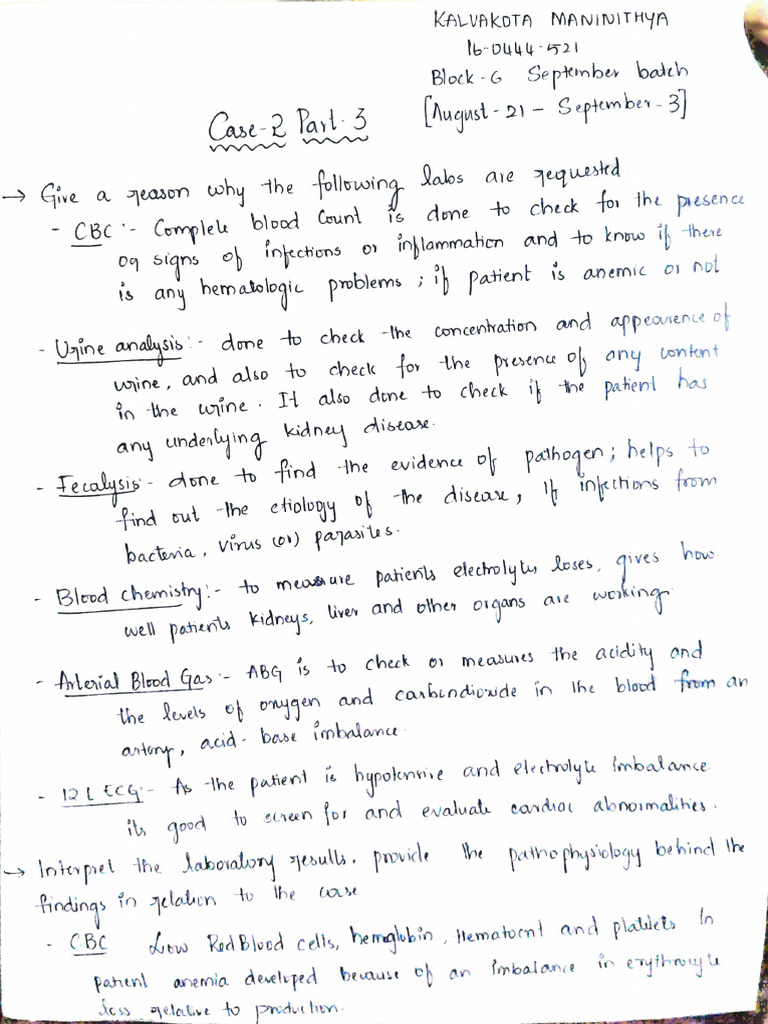 KALVAKOTA MANINITHYA
16-0444-521
Block-G September batch
[August-21 - September-3]
Case-2 Part-3
→ Give a reason why the following labs are requested
- CBC :- Complete blood Count is done to check for the presence
og signs of infections or inflammation and to know if there
is any hematologic problems ; if patient is anemic or not
- Urine analysis :- done to check the concentration and appearence of
urine, and also to check for the presence of any content
in the urine. It also done to check if the patient has
any underlying kidney disease.
- Fecalysis - done to find the evidence of pathogen ; helps to
find out the etiology of the disease, If infections from
bacteria, virus (or) parasites.
- Blood chemistry :- to measure patients electrolyte loses, gives how
well patients kidneys, liver and other organs are working
- Arterial Blood Gas :- ABG is to check or measures the acidity and
the levels of oxygen and carbondioxide in the blood from an
artery, acid-base imbalance.
- 12 L ECG :- As the patient is hypotensive and electrolyte imbalance
its good to screen for and evaluate cardiac abnormalities.
→ Interpret the laboratory results. provide the pathophysiology behind the
findings in relation to the case
- CBC Low Red Blood cells, hemoglobin, Hematocrit and platelets In
patient anemia developed because of an imbalance in erythrocyte
loss relative to production.